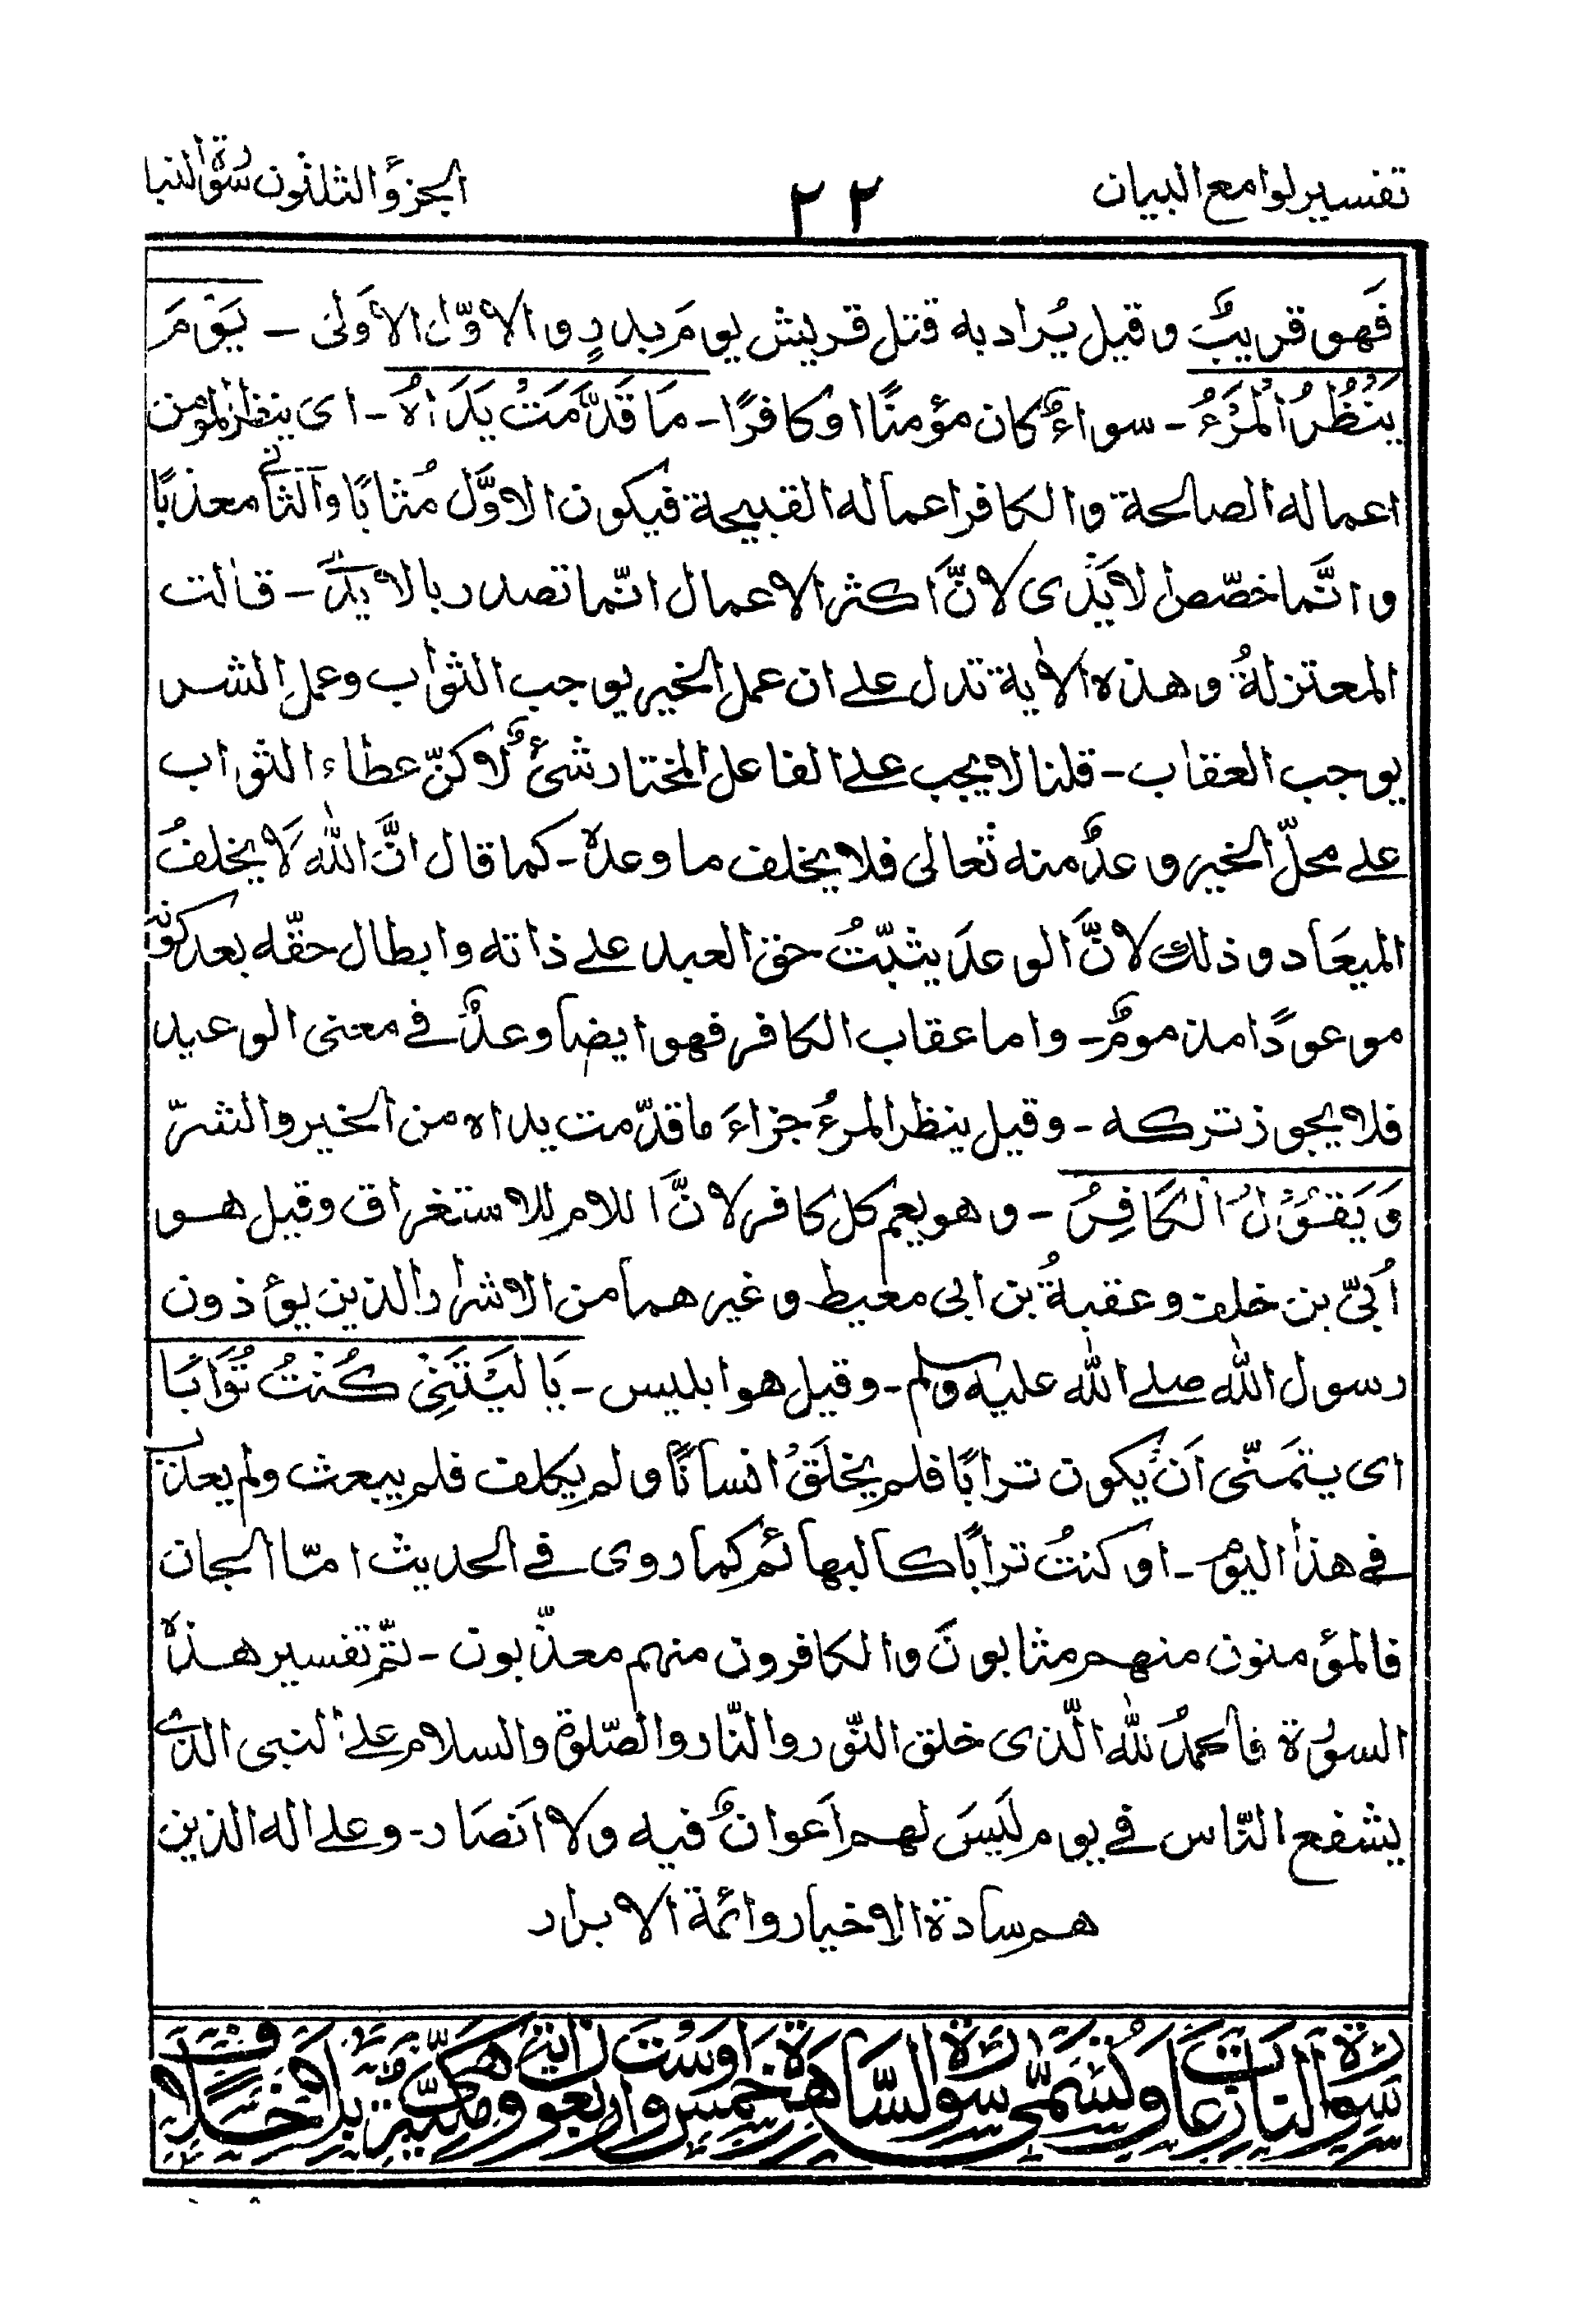 تفسير لوامع البيان
٢٢
الجزؤ الثلثون سورة النبا
فَهو قريبٌ وقيل يُراد به قتل قريش يومَ بدرٍ و الاوّل الأَولى - يَوْمَ
يَنْظُرُ الْمَرْءُ - سواءٌ كان مؤمنًا او كافرًا - مَا قَدَّمَتْ يَدَاهُ - اى ينظر المؤمن
اعماله الصالحة والكافر اعماله القبيحة فيكون الاوَّل مُثابًا والثانى معذبًا
و انَّما خصّص الايْدى لانَّ اكثر الاعمال انّما تصدر بالايدىْ - قالت
المعتزلةُ وهذه الاٰية تدل على ان عمل الخير يوجب الثواب وعمل الشر
يوجب العقاب - قلنا لا يجب على الفاعل المختار شئٌ لاكنّ عطاء الثواب
على محلّ الخير وعدٌ منه تعالى فلا يخلف ما وعده - كما قال انَّ اللّٰه لَا يخلفُ
الميعَاد و ذلك لانَّ الوعدَ يثبّتُ حق العبد على ذاته وابطال حقّه بعد كونه
موعودًا مذمومٌ - واما عقاب الكافر فهو ايضا وعدٌ فى معنى الوعيد
فلا يجوز تركه - وقيل ينظر المرءُ جزاءَ ما قدّمت يداه من الخير والشرّ
وَيَقُوْلُ الْكَافِرُ - وهو يعم كل كافر لانَّ اللام للاستغراق وقيل هو
اُبىّ بن خلف وعقبةُ بن ابى معيط وغيرهما من الاشرار الذين يؤذون
رسول اللّٰه صلى اللّٰه عليه وسلم - وقيل هو ابليس - يَا لَيْتَنِىْ كُنْتُ تُرَابًا
اى يتمَنّى اَنْ يكون ترابًا فلم يخلَقْ انسانًا ولم يكلف فلم يبعث ولم يعذب
فى هذا اليوم - او كنتُ ترابًا كالبهائم كما روى فى الحديث امّا الجان
فالمؤمنون منهم مثابونَ والكافرون منهم معذّبون - تمّ تفسير هذه
السورة فالحمدُ للّٰه الّذى خلق النّور والنّار والصّلوة والسلام على النبى الذى
يشفع النّاس فى يوم لَيسَ لهم اَعوانٌ فيه ولا اَنصَار - وعلى اله الذين
هم سادة الاخيار وائمة الابرار
سورة النازعات وتسمّى سورة الساهرة خمس او ست واربعون اٰية وهى مكّيّة بلا خلاف